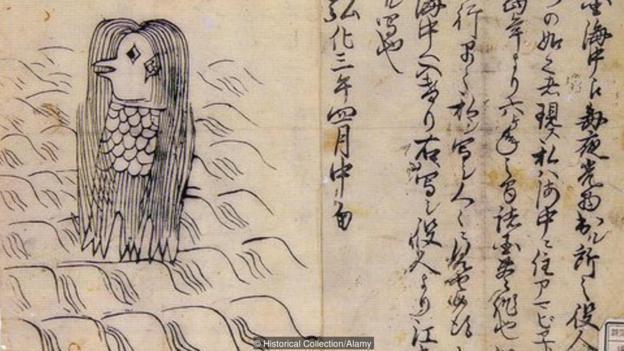 海中え毎夜光物出ル所之役人
づの如之者現ス私ハ海中ニ住アマビヱ
当年より六ヶ年之間諸国豊作也
行早々私シ写シ人々ニ見セ候
海中へ入けり右写シ役人より江
ル写也
弘化三年四月中旬
© Historical Collection/Alamy